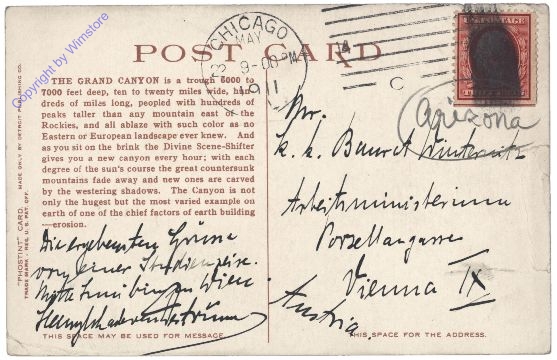 Copyright by Winstore
CHICAGO
MAY 2
9-00 PM
1911
C
POST CARD
"PHOSTINT" CARD. MADE ONLY BY DETROIT PUBLISHING CO.
TRADE MARK REG. U.S. PAT. OFF.
THE GRAND CANYON is a trough 5000 to
7000 feet deep, ten to twenty miles wide, hun-
dreds of miles long, peopled with hundreds of
peaks taller than any mountain east of the
Rockies, and all ablaze with such color as no
Eastern or European landscape ever knew. And
as you sit on the brink the Divine Scene-Shifter
gives you a new canyon every hour; with each
degree of the sun's course the great countersunk
mountains fade away and new ones are carved
by the westering shadows. The Canyon is not
only the hugest but the most varied example on
earth of one of the chief factors of earth building
—erosion.
Die ergebensten Grüsse
von einer Studienreise.
Mitte Juni bin in Wien
THIS SPACE MAY BE USED FOR MESSAGE.
Arizona
Mr.
k. k. Baurat Winternitz
Arbeitsministerium
Porzellangasse
Vienna IX
Austria
THIS SPACE FOR THE ADDRESS.